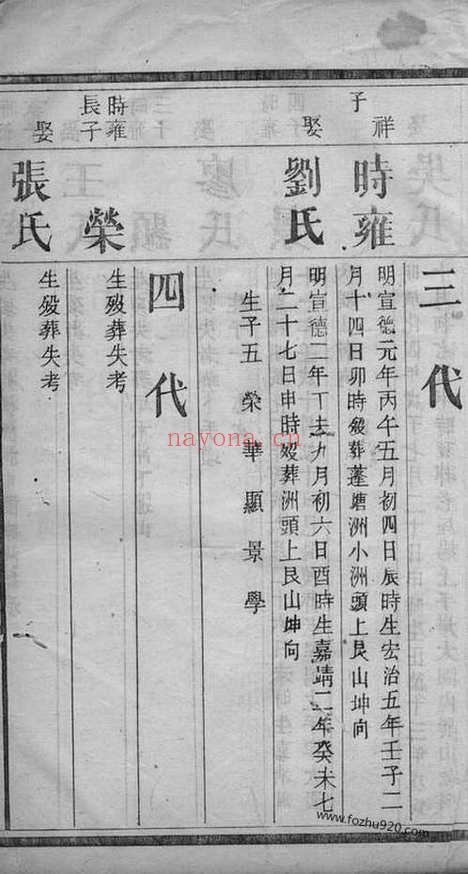 三代
祥子
時雍
明宣德元年丙午五月初四日辰時生宏治五年壬子二
月十四日卯時殁葬蓬塘洲小洲頭上艮山坤向
娶
劉氏
明宣德二年丁未九月初六日酉時生嘉靖二年癸未七
月二十七日申時殁葬洲頭上艮山坤向
生子五 榮 華 顯 景 學
四代
時雍長子
榮
生殁葬失考
娶
張氏
生殁葬失考
nayona.cn
www.fozhu920.com